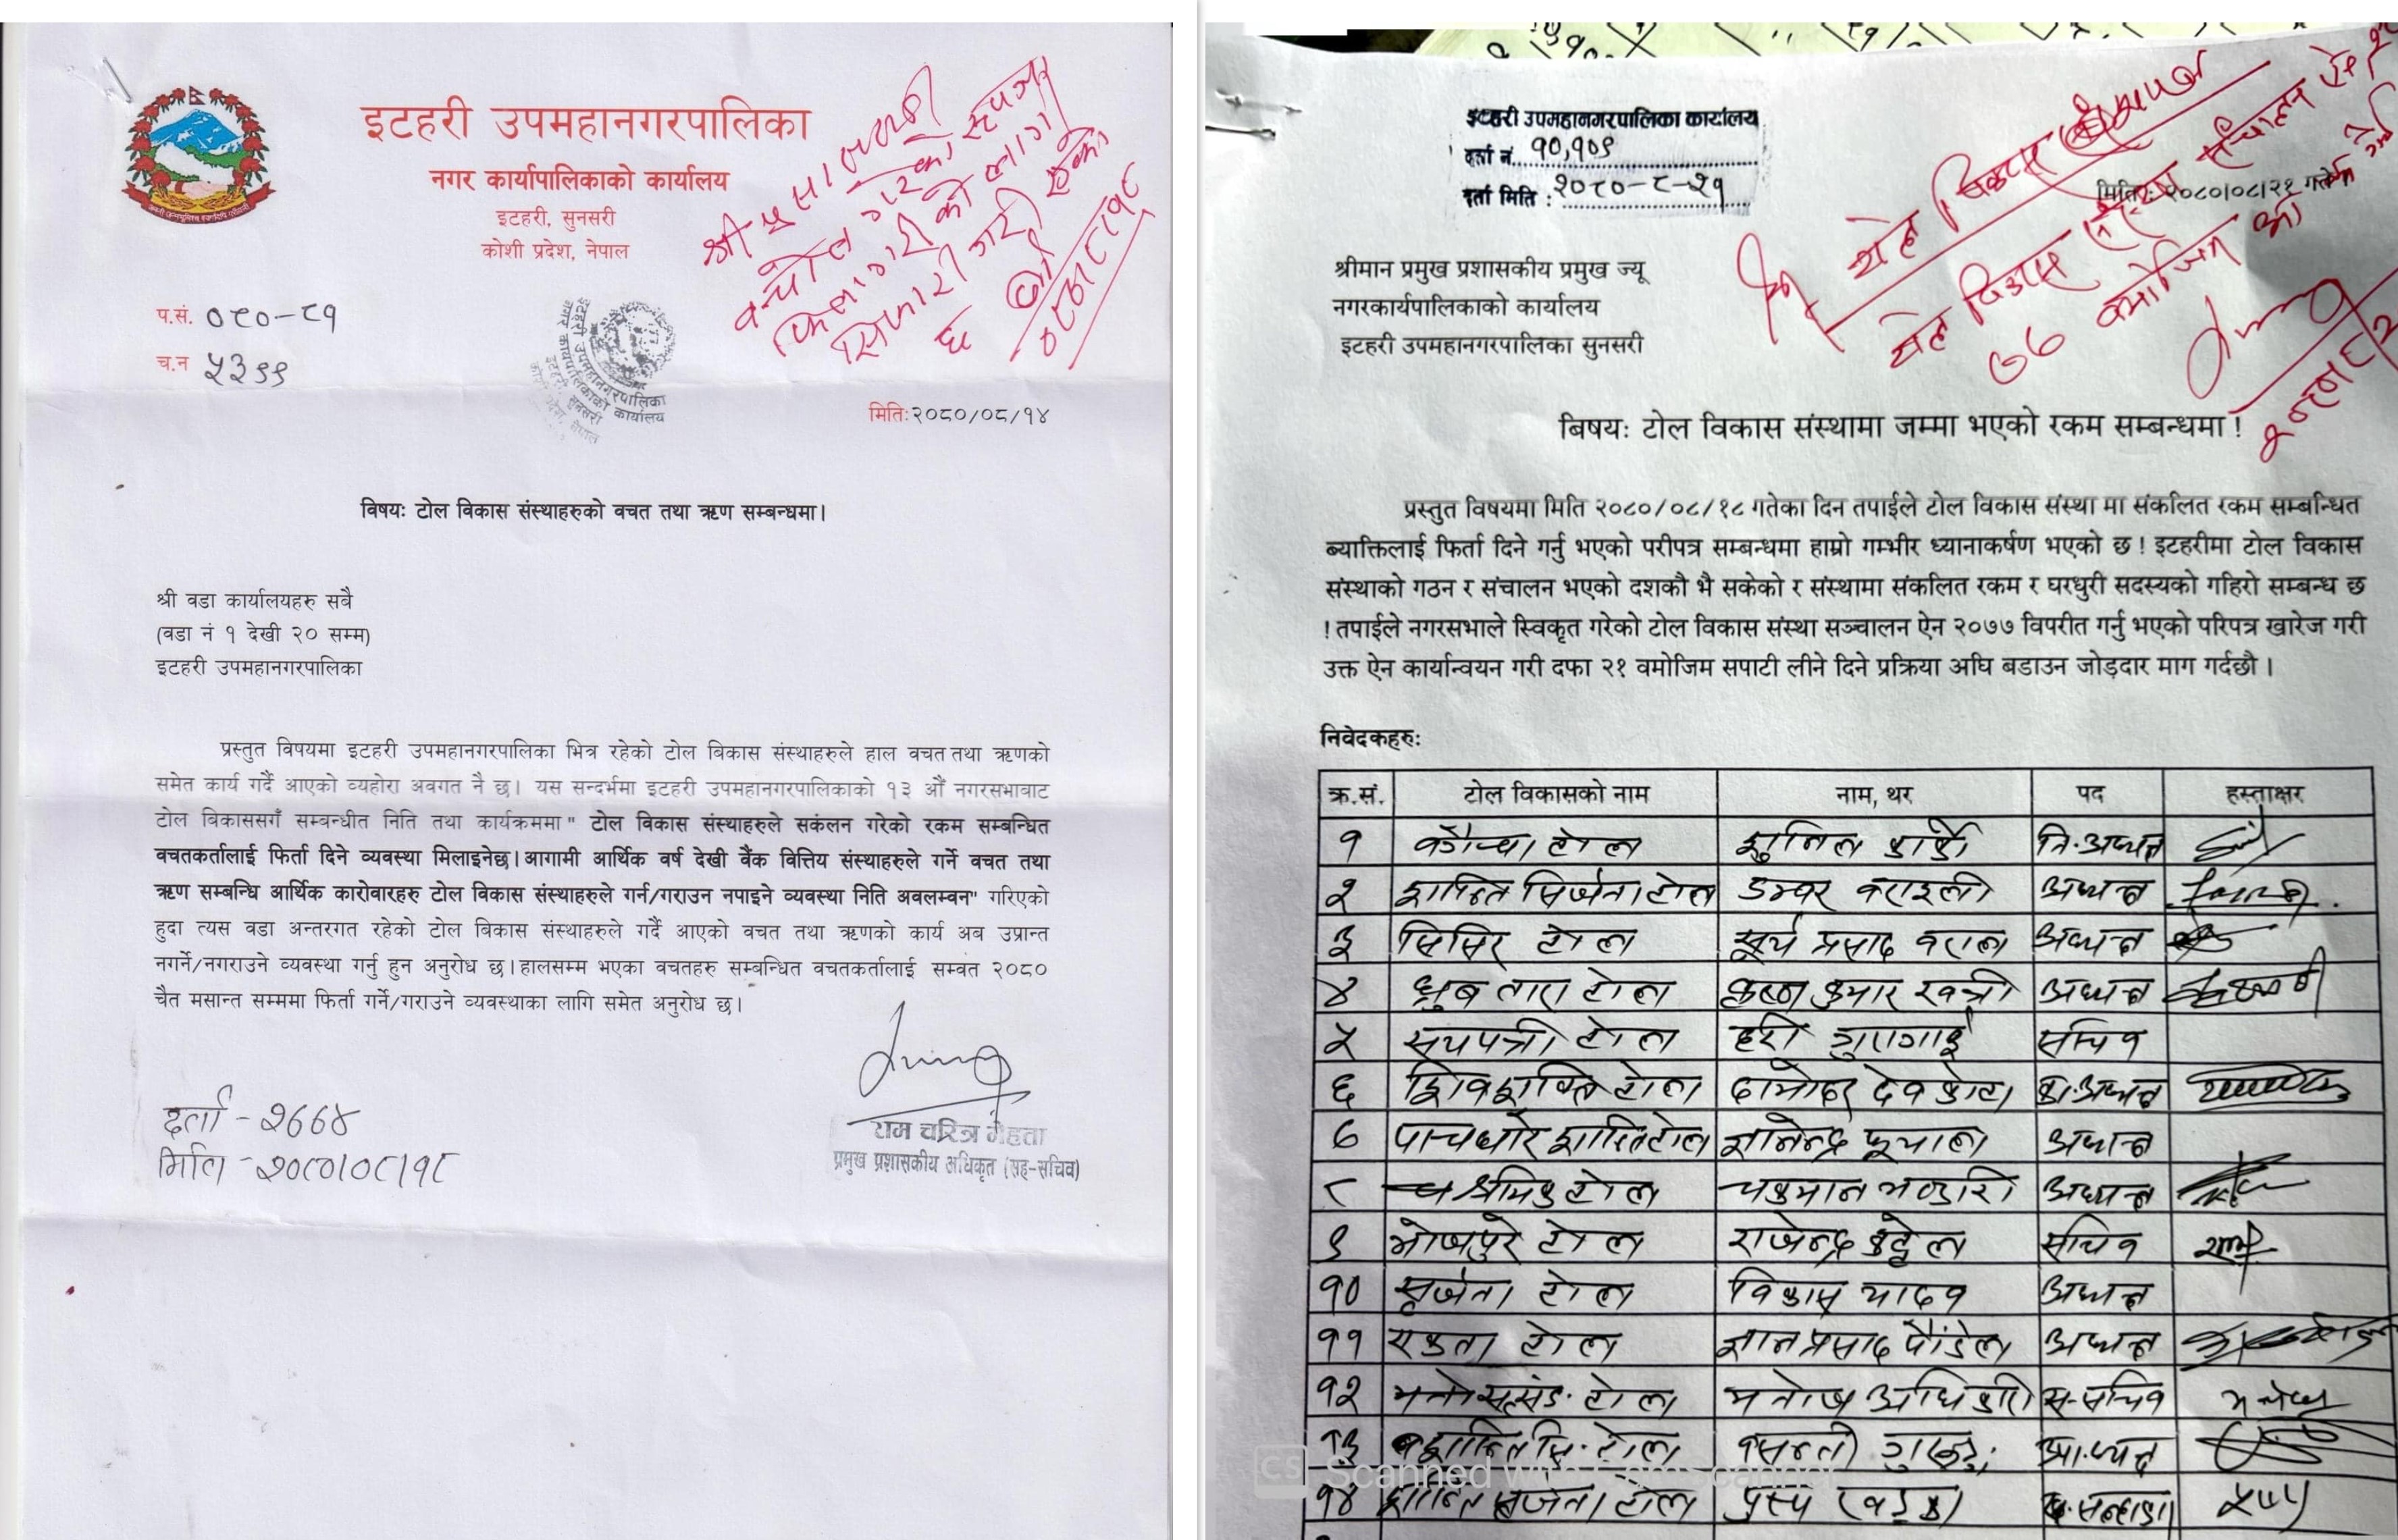 इटहरी उपमहानगरपालिका
नगर कार्यपालिकाको कार्यालय
इटहरी, सुनसरी
कोशी प्रदेश, नेपाल
प.सं. ०८०-८१
च.न ५३९९
मिति:२०८०/०८/१४
विषयः टोल विकास संस्थाहरुको वचत तथा ऋण सम्बन्धमा।
श्री वडा कार्यालयहरु सबै
(वडा नं १ देखी २० सम्म)
इटहरी उपमहानगरपालिका
प्रस्तुत विषयमा इटहरी उपमहानगरपालिका भित्र रहेको टोल बिकास संस्थाहरुले हाल वचत तथा ऋणको
समेत कार्य गर्दै आएको व्यहोरा अवगत नै छ। यस सन्दर्भमा इटहरी उपमहानगरपालिकाको १३ औं नगरसभाबाट
टोल विकाससगँ सम्बन्धीत निति तथा कार्यक्रममा" टोल विकास संस्थाहरुले सकंलन गरेको रकम सम्बन्धित
वचतकर्तालाई फिर्ता दिने व्यवस्था मिलाइनेछ।आगामी आर्थिक वर्ष देखी वैंक वित्तिय संस्थाहरुले गर्ने वचत तथा
ऋण सम्बन्धि आर्थिक कारोवारहरु टोल विकास संस्थाहरुले गर्न/गराउन नपाइने व्यवस्था निति अवलम्वन" गरिएको
हुदा त्यस वडा अन्तरगत रहेको टोल बिकास संस्थाहरुले गर्दै आएको वचत तथा ऋणको कार्य अब उप्रान्त
नगर्ने/नगराउने व्यवस्था गर्नु हुन अनुरोध छ।हालसम्म भएका वचतहरु सम्बन्धित वचतकर्तालाई सम्वत २०८०
चैत मसान्त सम्ममा फिर्ता गर्ने/गराउने व्यवस्थाका लागि समेत अनुरोध छ।
राम चरित्र मेहता
प्रमुख प्रशासकीय अधिकृत (सह-सचिव)
दर्ता - २७७४
मिति - २०८०।०८।१८
इटहरी उपमहानगरपालिका कार्यालय
दर्ता नं. १०,१०९
दर्ता मिति : २०८०-८-२१
मितिः २०८०।०८।२१ गते
श्रीमान प्रमुख प्रशासकीय प्रमुख ज्यू
नगरकार्यपालिकाको कार्यालय
इटहरी उपमहानगरपालिका सुनसरी
बिषयः टोल विकास संस्थामा जम्मा भएको रकम सम्बन्धमा !
प्रस्तुत विषयमा मिति २०८०/०८/१८ गतेका दिन तपाईले टोल विकास संस्था मा संकलित रकम सम्बन्धित
ब्याक्तिलाई फिर्ता दिने गर्नु भएको परीपत्र सम्बन्धमा हाम्रो गम्भीर ध्यानाकर्षण भएको छ ! इटहरीमा टोल विकास
संस्थाको गठन र संचालन भएको दशकौ भै सकेको र संस्थामा संकलित रकम र घरधुरी सदस्यको गहिरो सम्बन्ध छ
! तपाईले नगरसभाले स्विकृत गरेको टोल विकास संस्था सञ्चालन ऐन २०७७ विपरीत गर्नु भएको परिपत्र खारेज गरी
उक्त ऐन कार्यान्वयन गरी दफा २१ वमोजिम सपाटी लीने दिने प्रक्रिया अघि बडाउन जोड़दार माग गर्दछौ ।
निवेदकहरुः
क्र.सं. टोल विकासको नाम नाम, थर पद हस्ताक्षर
१ टोल
२ शान्ति सिर्जना टोल डम्वर बराइली अध्यक्ष
३ सिसिर टोल सूर्य प्रसाद बराल अध्यक्ष
४ ध्रुब तारा टोल कृष्ण कुमार खत्री अध्यक्ष
५ सयपत्री टोल हरी गुरागाई सचिव
६ शिवशक्ति टोल दामोदर देवकोटा का.अध्यक्ष
७ पाचथरे शान्तिटोल ज्ञानेन्द्र फुयाल अध्यक्ष
८ श्रमिक टोल अध्यक्ष
९ भोजपुरे टोल राजेन्द्र सचिव
१० सृजना टोल विकास यादव अध्यक्ष
११ एकता टोल ज्ञानप्रसाद पौडेल अध्यक्ष
१२ टोल मनोज अधिकारी स-सचिव
१३ टोल
१४ टोल
CS Scanned with CamScanner